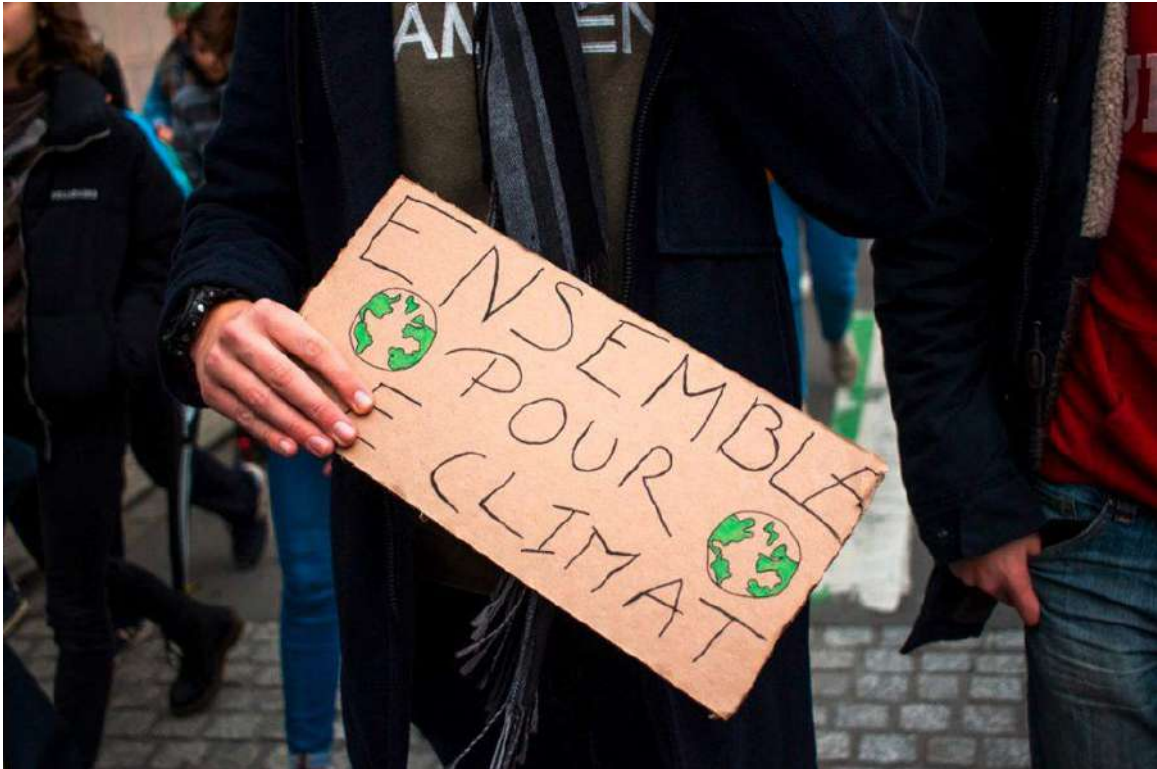 ENSEMBLA
POUR
CLIMAT